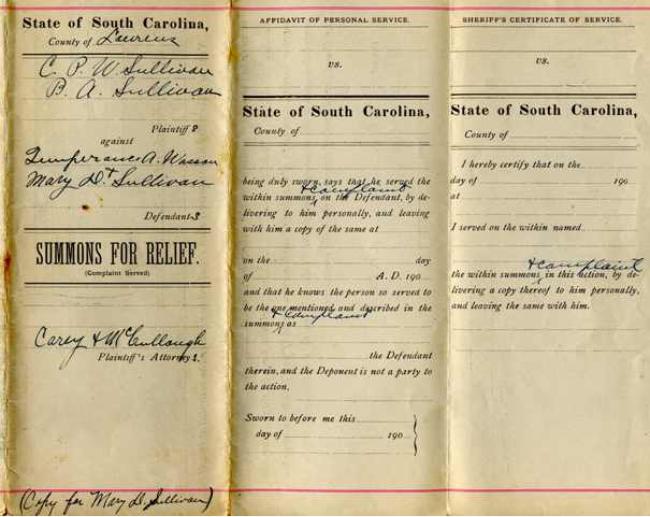 State of South Carolina,
County of Laurens
C. P. W. Sullivan
B. A. Sullivan
Plaintiffs
against
Temperance A. Wasson
Mary D. Sullivan
Defendants
SUMMONS FOR RELIEF.
(Complaint Served)
Carey & McCullough
Plaintiff's Attorneys.
(Copy for Mary D. Sullivan)
AFFIDAVIT OF PERSONAL SERVICE.
vs.
State of South Carolina,
County of
being duly sworn, says that he served the
& complaint
within summons, on the Defendant, by de-
livering to him personally, and leaving
with him a copy of the same at
on the day
of A. D. 190
and that he knows the person so served to
be the one mentioned and described in the
& complaint
summons as
the Defendant
therein, and the Deponent is not a party to
the action.
Sworn to before me this
day of 190
SHERIFF'S CERTIFICATE OF SERVICE.
vs.
State of South Carolina,
County of
I hereby certify that on the
day of 190
at
I served on the within named
& complaint
the within summons in this action, by de-
livering a copy thereof to him personally,
and leaving the same with him.